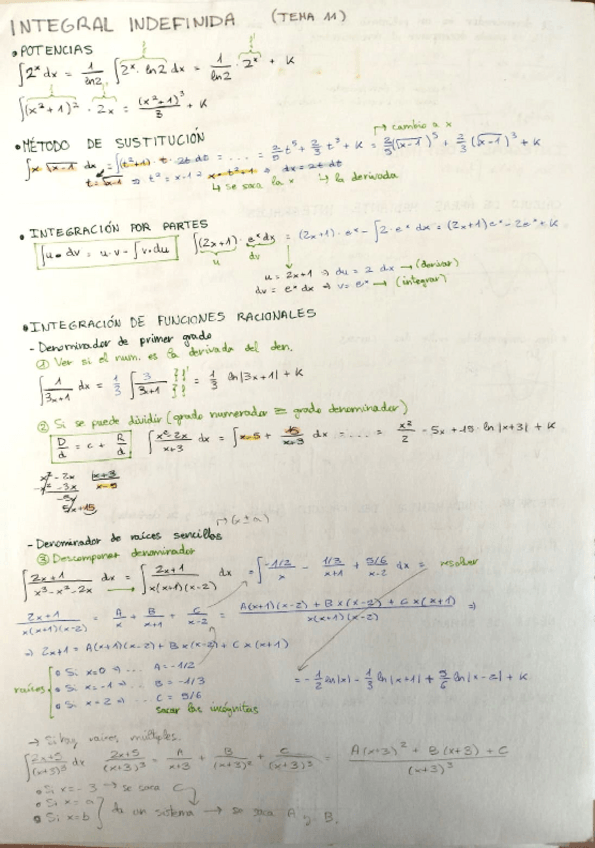 INTEGRAL INDEFINIDA (TEMA 11)
• POTENCIAS
∫2ˣ dx = 1/ln2 ∫2ˣ · ln2 dx = 1/ln2 · 2ˣ + K
∫(x²+1)² · 2x = (x²+1)³/3 + K
• MÉTODO DE SUSTITUCIÓN
↱ cambio a x
∫x √x-1 dx = ∫(t²+1) · t · 2t dt = ... = 2/5 t⁵ + 2/3 t³ + K = 2/5 (√x-1)⁵ + 2/3 (√x-1)³ + K
t = √x-1 ⇒ t² = x-1 ⇒ x = t²+1 ⇒ dx = 2t dt
↳ se saca la x ↳ la derivada
• INTEGRACIÓN POR PARTES
∫u · dv = u · v - ∫v · du
∫(2x+1) · eˣ dx = (2x+1) · eˣ - ∫2 · eˣ dx = (2x+1) eˣ - 2eˣ + K
u dv
u = 2x+1 ⇒ du = 2 dx → (derivar)
dv = eˣ dx ⇒ v = eˣ → (integrar)
• INTEGRACIÓN DE FUNCIONES RACIONALES
- Denominador de primer grado
① Ver si el num. es la derivada del den.
∫ 1/3x+1 dx = 1/3 ∫ 3/3x+1 = 1/3 ln|3x+1| + K
② Si se puede dividir (grado numerador ≥ grado denominador)
D/d = c + R/d ∫ x²-2x/x+3 dx = ∫x-5 + 15/x+3 dx = .... = x²/2 - 5x + 15 · ln|x+3| + K
x² - 2x |x+3
-x² - 3x x-5
-5x
5x+15
↱ (x ± a)
- Denominador de raíces sencillas
③ Descomponer denominador
∫ 2x+1/x³-x²-2x dx = ∫ 2x+1/x(x+1)(x-2) dx = ∫ -1/2/x - 1/3/x+1 + 5/6/x-2 dx = resolver
2x+1/x(x+1)(x-2) = A/x + B/x+1 + C/x-2 = A(x+1)(x-2) + Bx(x-2) + Cx(x+1)/x(x+1)(x-2) ⇒
⇒ 2x+1 = A(x+1)(x-2) + Bx(x-2) + Cx(x+1)
raíces
• Si x=0 ⇒ ... A = -1/2
• Si x=-1 ⇒ ... B = -1/3
• Si x=2 ⇒ ... C = 5/6
sacar las incógnitas
= -1/2 ln|x| - 1/3 ln|x+1| + 5/6 ln|x-2| + K
→ Si hay raíces múltiples.
∫ 2x+5/(x+3)³ dx 2x+5/(x+3)³ = A/x+3 + B/(x+3)² + C/(x+3)³ = A(x+3)² + B(x+3) + C/(x+3)³
• Si x=-3 → se saca C
• Si x=a
• Si x=b
da un sistema → se saca A y B.